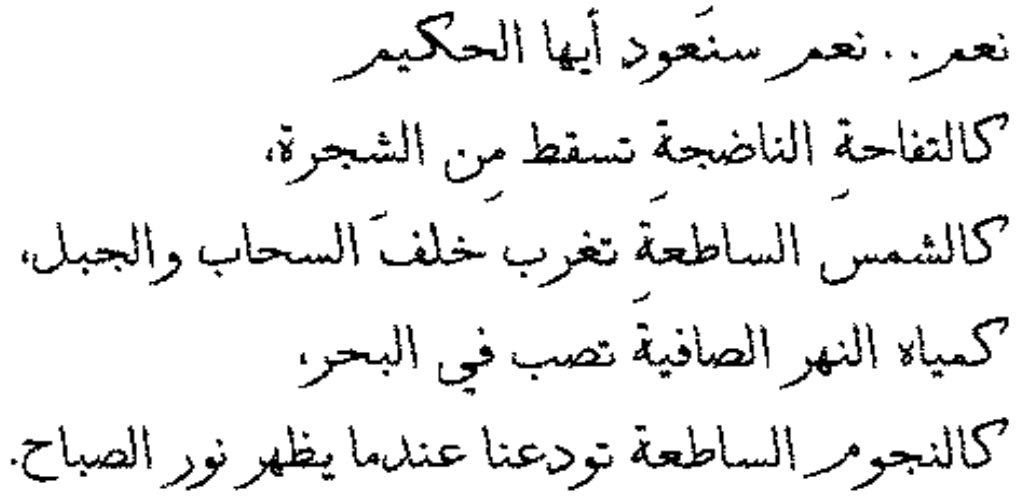 نعم.. نعم سنَعود أيها الحكيم
كالتفاحة الناضجة تسقط من الشجرة،
كالشمسَ الساطعةَ تغرب خلفَ السحاب والجبل،
كمياه النهر الصافيةَ تصب في البحر،
كالنجوم الساطعة تودعنا عندما يظهر نور الصباح.